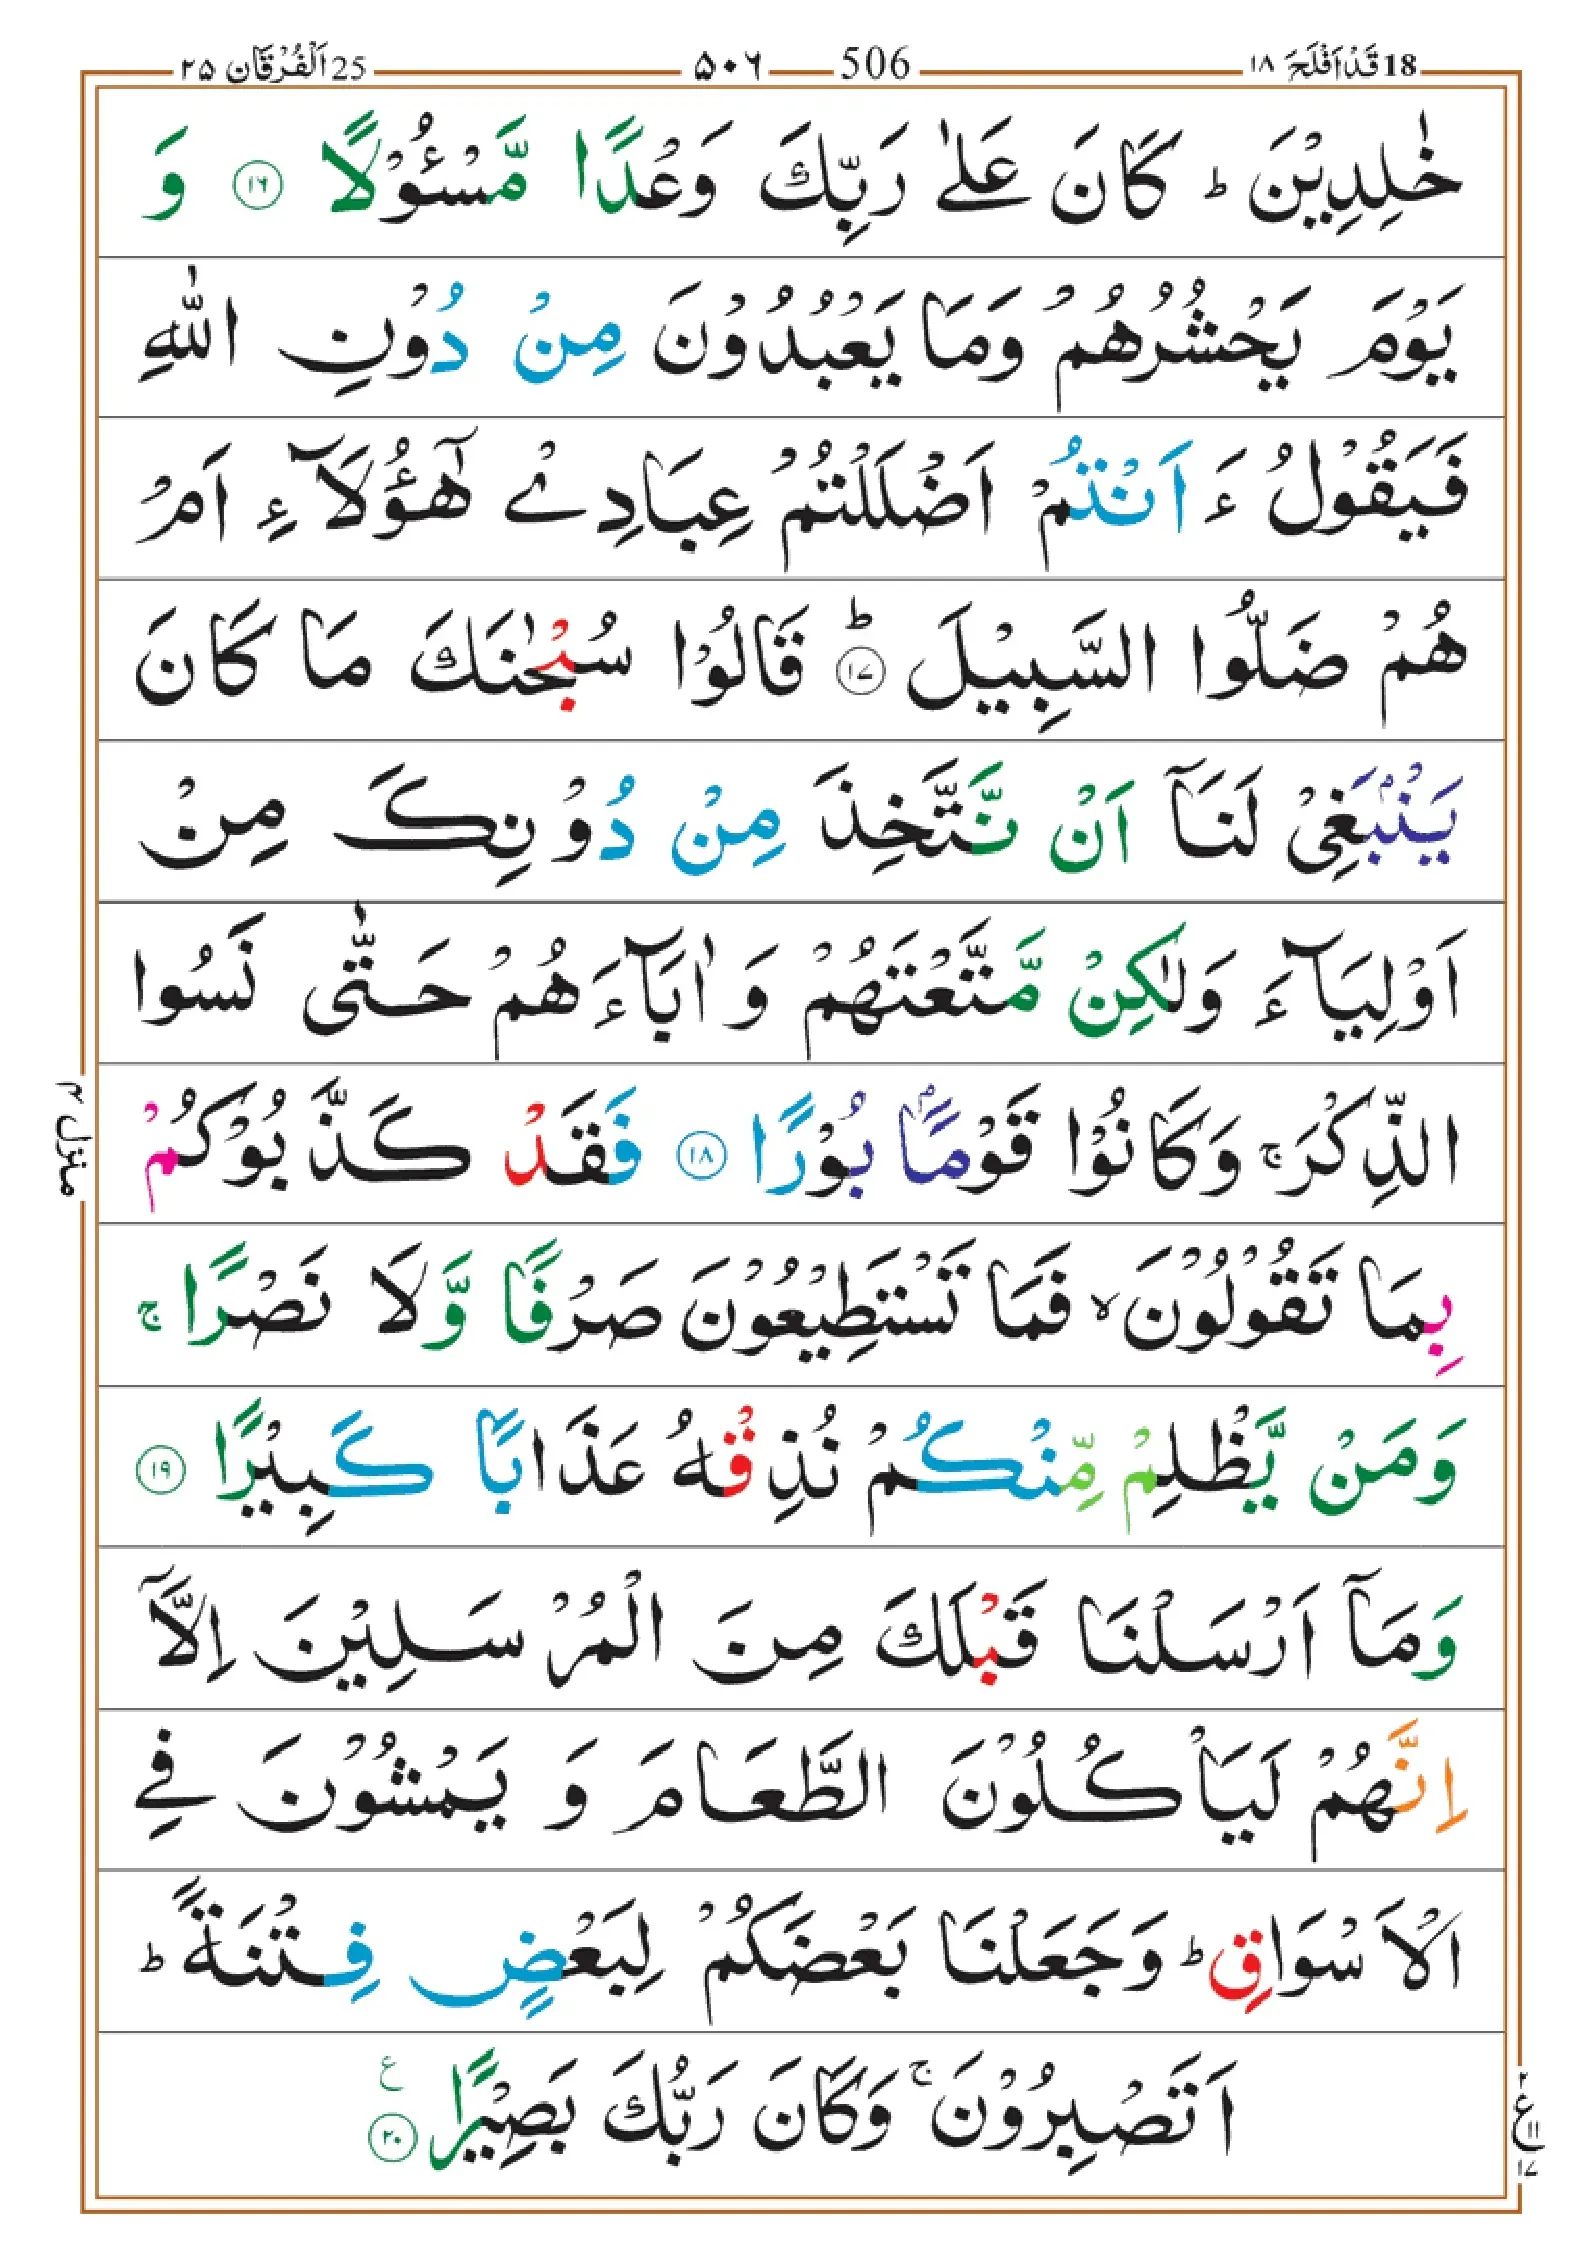 18 قَدۡ اَفۡلَحَ ١٨ 506 ۵۰۶ 25 اَلۡفُرۡقَان ۲۵
خٰلِدِيۡنَ ؕ كَانَ عَلٰى رَبِّكَ وَعۡدًا مَّسۡـُٔوۡلًا ﴿۱۶﴾ وَ
يَوۡمَ يَحۡشُرُهُمۡ وَمَا يَعۡبُدُوۡنَ مِنۡ دُوۡنِ اللّٰهِ
فَيَقُوۡلُ ءَاَنۡتُمۡ اَضۡلَلۡتُمۡ عِبَادِىۡ هٰٓؤُلَاۤءِ اَمۡ
هُمۡ ضَلُّوا السَّبِيۡلَ ؕ ﴿۱۷﴾ قَالُوۡا سُبۡحٰنَكَ مَا كَانَ
يَنۡۢبَغِىۡ لَنَاۤ اَنۡ نَّتَّخِذَ مِنۡ دُوۡنِكَ مِنۡ
اَوۡلِيَآءَ وَلٰكِنۡ مَّتَّعۡتَهُمۡ وَاٰبَآءَهُمۡ حَتّٰى نَسُوا
الذِّكۡرَ ۚ وَكَانُوۡا قَوۡمًۢا بُوۡرًا ﴿۱۸﴾ فَقَدۡ كَذَّبُوۡكُمۡ
بِمَا تَقُوۡلُوۡنَ ۙ فَمَا تَسۡتَطِيۡعُوۡنَ صَرۡفًا وَّلَا نَصۡرًا ۚ
وَمَنۡ يَّظۡلِمۡ مِّنۡكُمۡ نُذِقۡهُ عَذَابًا كَبِيۡرًا ﴿۱۹﴾
وَمَاۤ اَرۡسَلۡنَا قَبۡلَكَ مِنَ الۡمُرۡسَلِيۡنَ اِلَّاۤ
اِنَّهُمۡ لَيَاۡكُلُوۡنَ الطَّعَامَ وَيَمۡشُوۡنَ فِى
الۡاَسۡوَاقِ ؕ وَجَعَلۡنَا بَعۡضَكُمۡ لِبَعۡضٍ فِتۡنَةً ؕ
اَتَصۡبِرُوۡنَ ۚ وَكَانَ رَبُّكَ بَصِيۡرًا ﴿۲۰﴾ ع
منزل ۴
۲ ع ۱۱ ۱۷